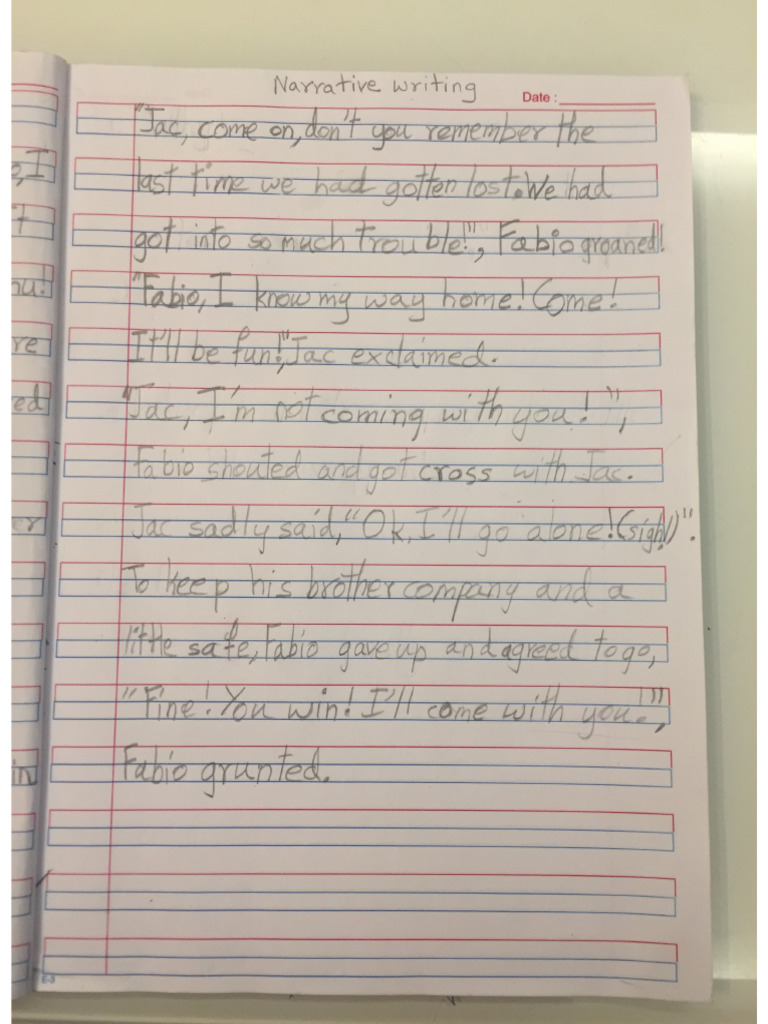 Narrative writing
Date :
"Jac, come on, don't you remember the
last time we had gotten lost. We had
got into so much trouble!", Fabio groaned!
"Fabio, I know my way home! Come!
It'll be fun!," Jac exclaimed.
"Jac, I'm not coming with you!",
Fabio shouted and got cross with Jac.
Jac sadly said, "Ok, I'll go alone! (sigh!)".
To keep his brother company and a
little safe, Fabio gave up and agreed to go,
"Fine! You win! I'll come with you!",
Fabio grunted.
, I
t
nu!
re
ed
er
in